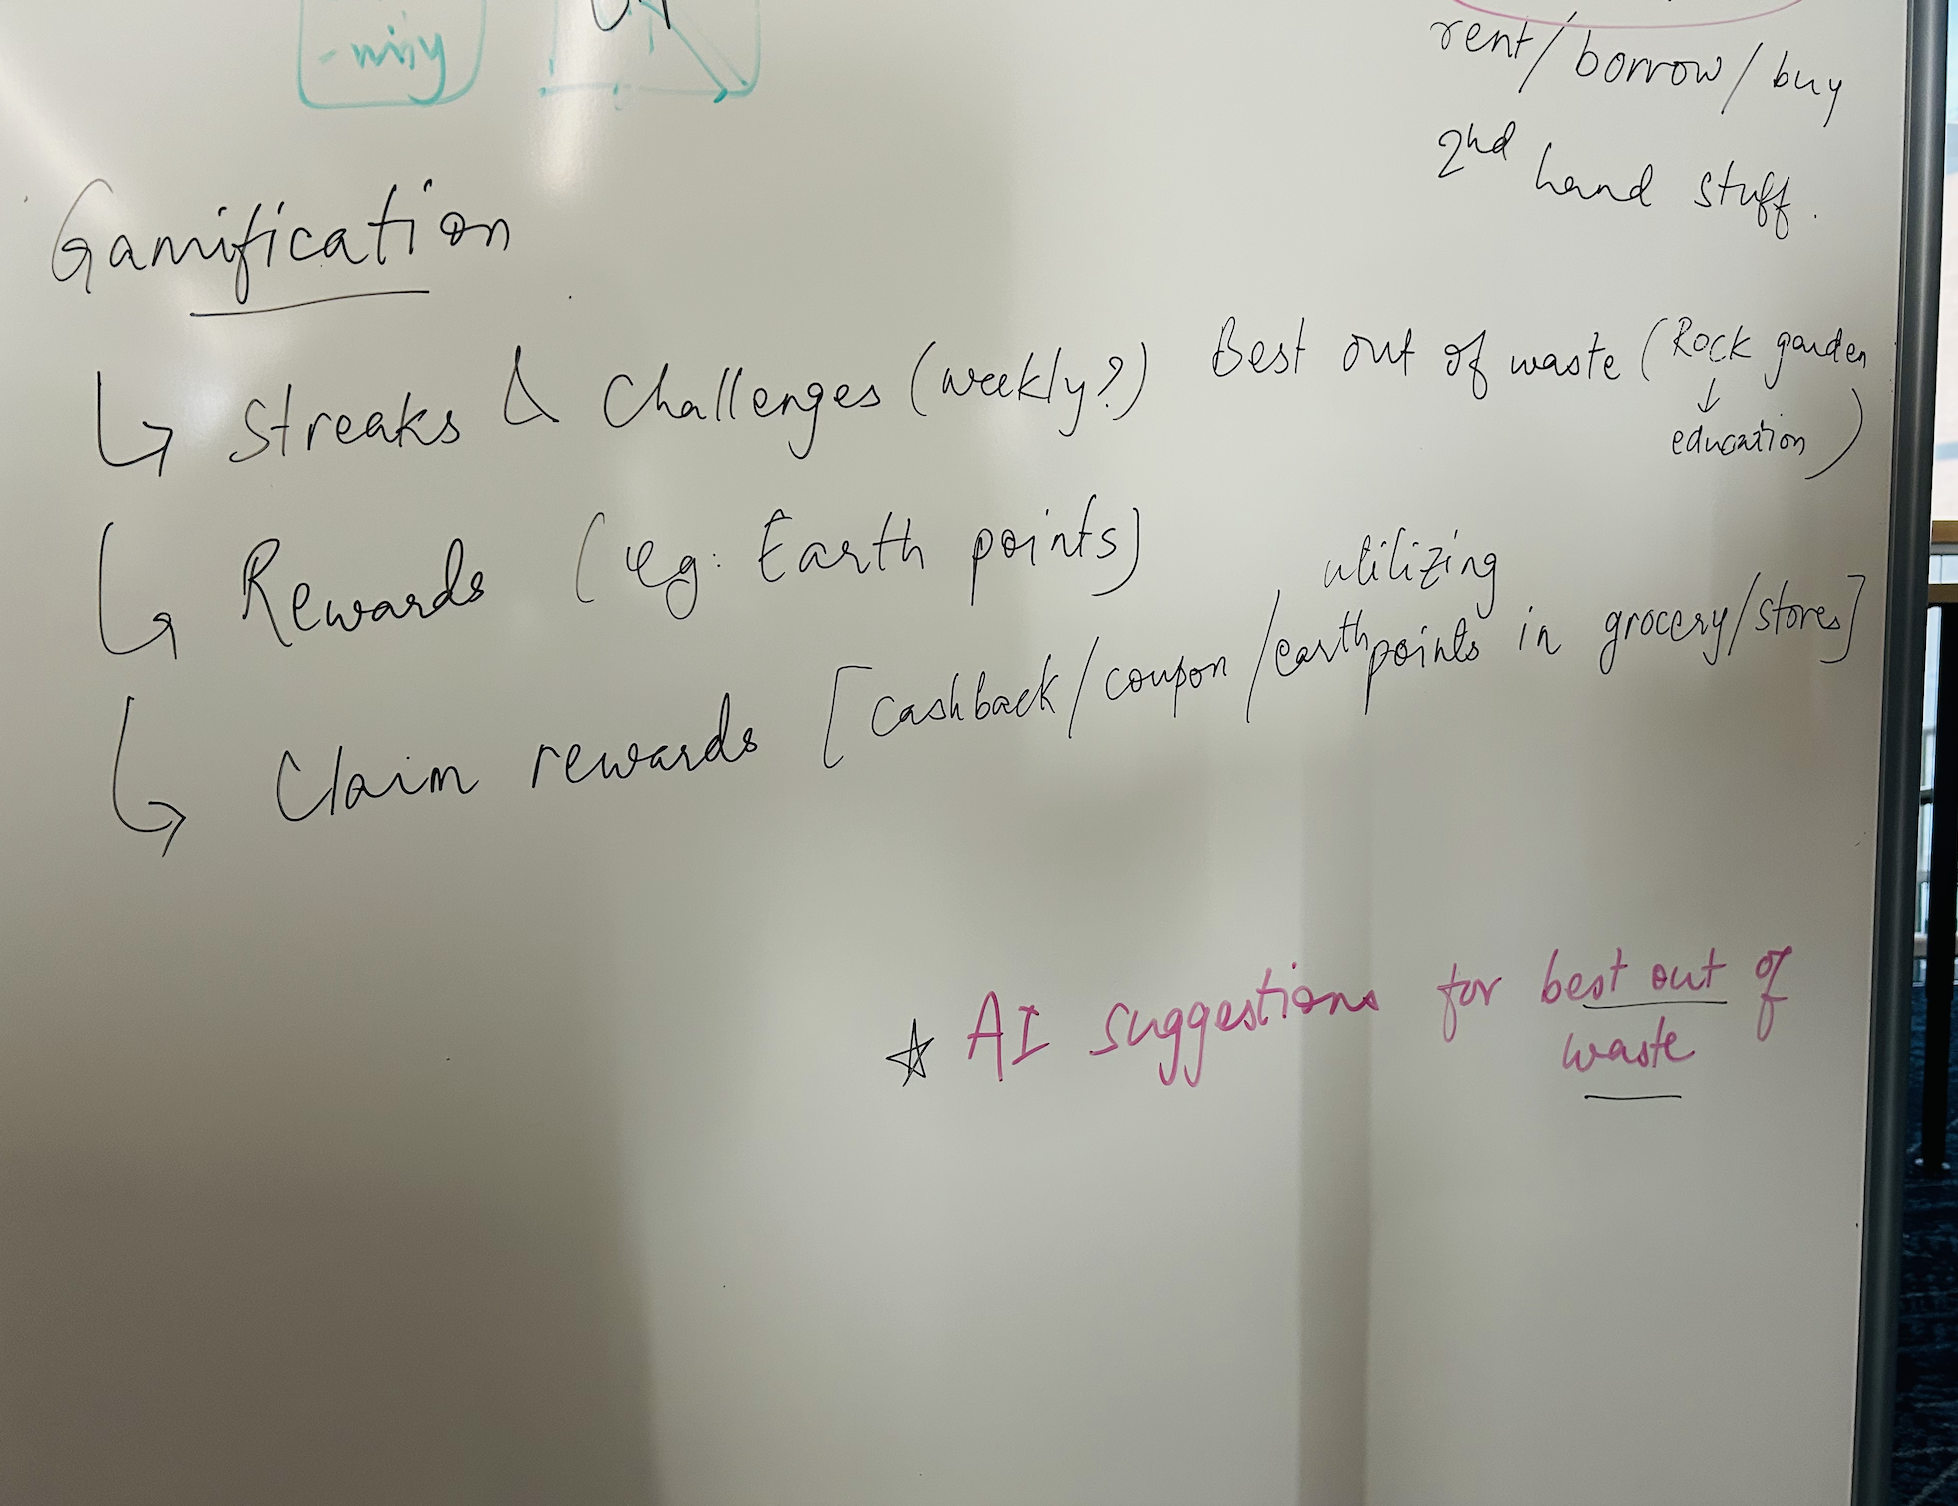 rent/borrow/buy
2nd hand stuff.
Gamification
Streaks & Challenges (weekly?)
Best out of waste (Rock garden
↓
education)
Rewards (eg: Earth points)
Claim rewards [cashback/coupon/earthpoints in grocery/stores]
utilizing
☆ AI suggestions for best out of
waste